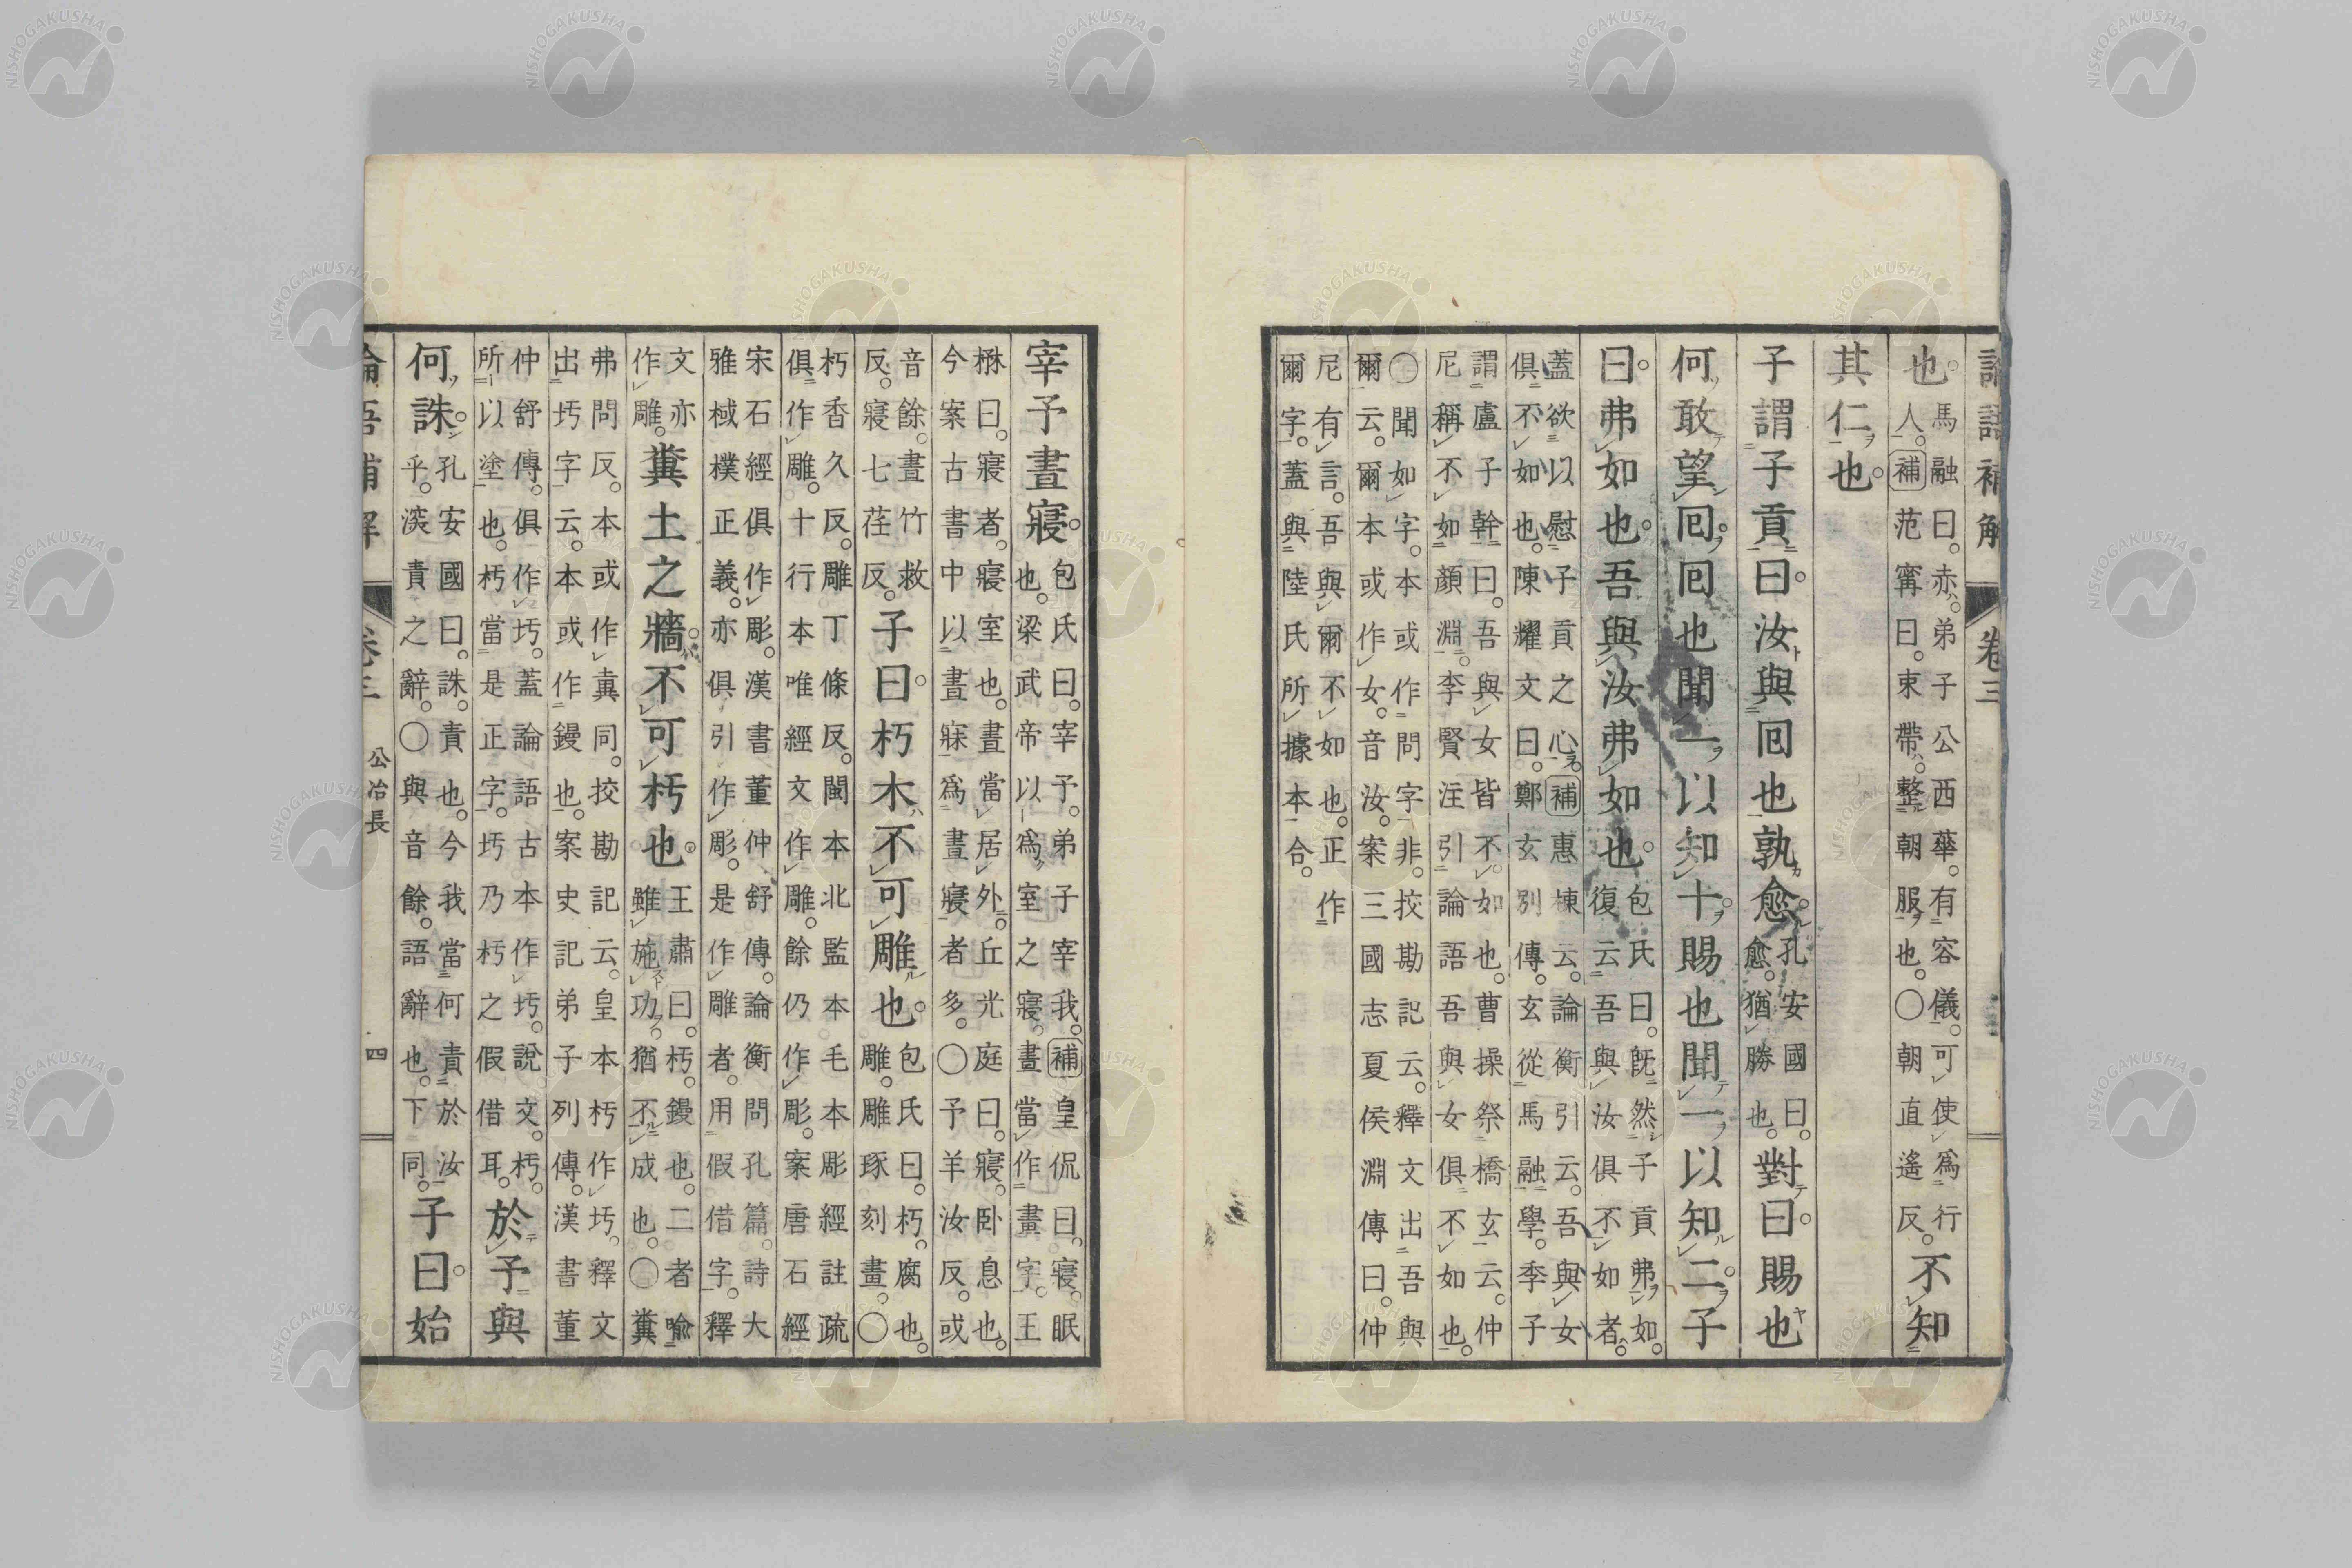 論語補解 卷三
也
馬融曰。赤弟子公西華。有容儀。可使爲行
人。補范寗曰。束帶。整朝服也。○朝直遙反。
不知
其仁也。
子謂子貢曰。汝與回也孰愈。
孔安國曰。
愈。猶勝也。
對曰。賜也
何敢望回。回也聞一以知十。賜也聞一以知二。子
曰。弗如也。吾與汝弗如也。
包氏曰。旣然子貢弗如。
復云吾與汝俱不如者。
蓋欲以慰子貢之心。補惠棟云。論衡引云。吾與女
俱不如也。陳耀文曰。鄭玄別傳。玄從馬融學。季子
謂盧子幹曰。吾與女皆不如也。曹操祭橋玄云。仲
尼稱不如顏淵。李賢注引論語吾與女俱不如也。
○聞如字。本或作問字。非。挍勘記云。釋文出吾與
爾云。爾本或作女。音汝。案三國志夏侯淵傳曰。仲
尼有言。吾與爾不如也。正作
爾字。蓋與陸氏所據本合。
宰予晝寢。
包氏曰。宰予。弟子宰我。補皇侃曰。寢。眠
也。梁武帝以爲室之寢。晝當作畫字。王
楙曰。寢者。寢室也。晝當居外。丘光庭曰。寢。卧息也。
今案古書中以晝寐爲晝寢者多。○予羊汝反。或
音餘。晝竹救
反。寢七荏反。
子曰。朽木不可雕也。
包氏曰。朽。腐也。
雕。雕琢刻畫。○
朽香久反。雕丁條反。閩本北監本毛本彫經註疏
俱作雕。十行本唯經文作雕。餘仍作彫。案唐石經
宋石經俱作彫。漢書董仲舒傳。論衡問孔篇。詩大
雅棫樸正義。亦俱引作彫。是作雕者。用假借字。釋
文亦
作雕。
糞土之牆不可杇也。
王肅曰。杇。鏝也。二者喻
雖施功猶不成也。○糞
弗問反。本或作糞同。挍勘記云。皇本杇作圬。釋文
出圬字云。本或作鏝也。案史記弟子列傳。漢書董
仲舒傳。俱作圬。蓋論語古本作圬。說文。杇。
所以塗也。杇當是正字。圬乃杇之假借耳。
於予與
何誅。
孔安國曰。誅。責也。今我當何責於汝
乎。深責之辭。○與音餘。語辭也。下同。
子曰。始
論語補解 卷三 公冶長 四